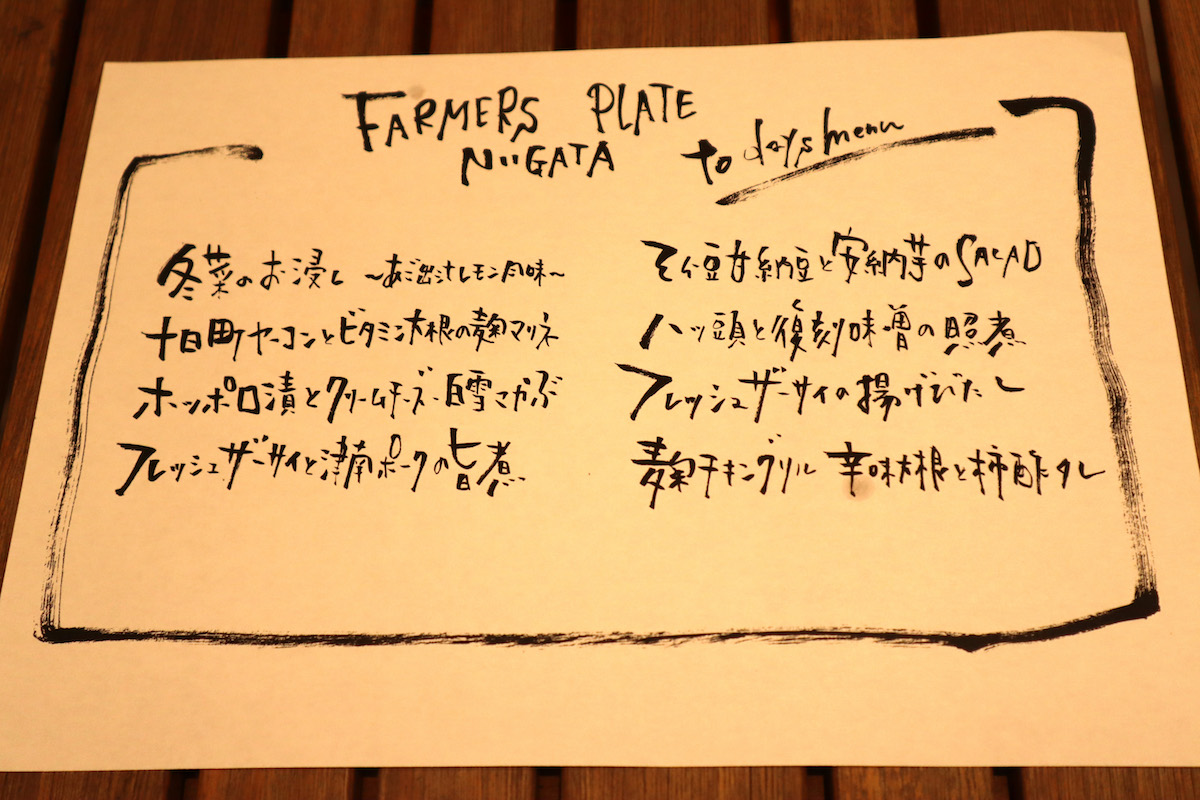 FARMERS PLATE
NIIGATA
to days menu
冬菜のお浸し 〜あご出汁レモン風味〜
十日町ヤーコンとビタミン大根の麹マリネ
ホッポロ漬とクリームチーズ・白雪マカぶ
フレッシュザーサイと津南ポークの旨煮
豆甘納豆と安納芋のSALAD
八ッ頭と復刻味噌の照煮
フレッシュザーサイの揚げびたし
麹チキングリル 辛味大根と柿酢タレ